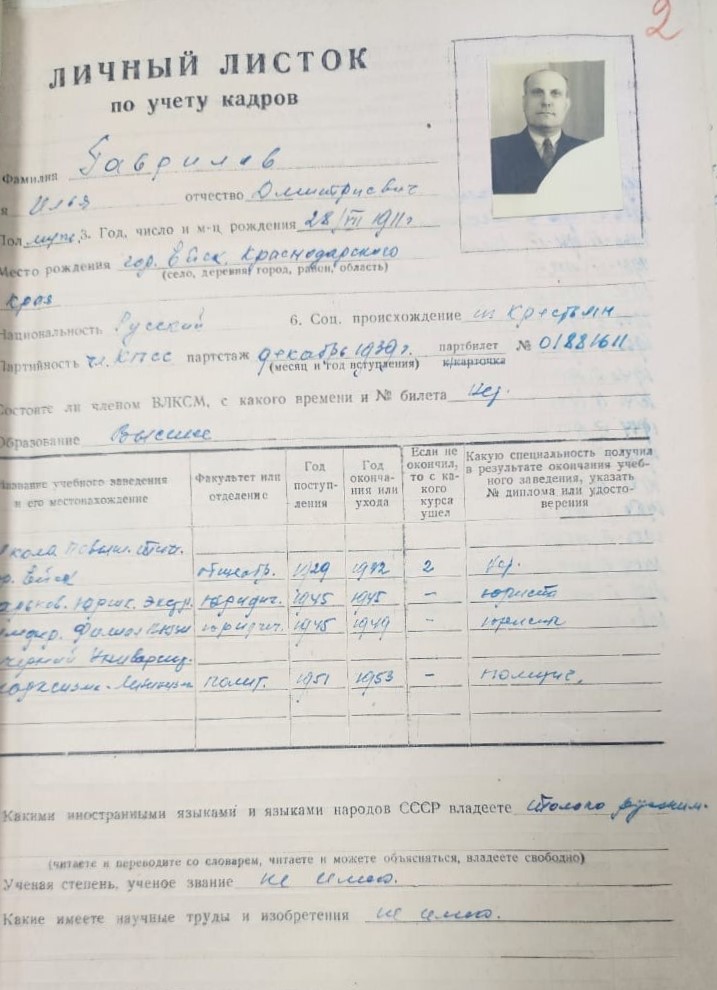 2
ЛИЧНЫЙ ЛИСТОК
по учету кадров
Фамилия Гаврилов
я Илья отчество Дмитриевич
Пол муж. 3. Год, число и м-ц рождения 28/VII 1911 г
Место рождения гор. Ейск Краснодарского
(село, деревня, город, район, область)
края
Национальность Русский 6. Соц. происхождение из Крестьян
Партийность чл. КПСС партстаж декабрь 1939 г. партбилет № 01881611
(месяц и год вступления) к/карточка
Состоите ли членом ВЛКСМ, с какого времени и № билета нет.
Образование Высшее
Название учебного заведения и его местонахождение
Факультет или отделение
Год поступ-ления
Год оконча-ния или ухода
Если не окончил, то с ка-кого курса ушел
Какую специальность получил в результате окончания учеб-ного заведения, указать № диплома или удосто-верения
кола повыш. тип.
р. Ейск общеобр. 1929 1932 2 нет.
Юрид. 1945 1945 – юриста
Филиал ВЮЗИ юридич. 1945 1949 – юрист
черний Университ.
марксизма-Ленинизма полит. 1951 1953 –
Какими иностранными языками и языками народов СССР владеете только русским.
(читаете и переводите со словарем, читаете и можете объясняться, владеете свободно)
Ученая степень, ученое звание не имею.
Какие имеете научные труды и изобретения не имею.